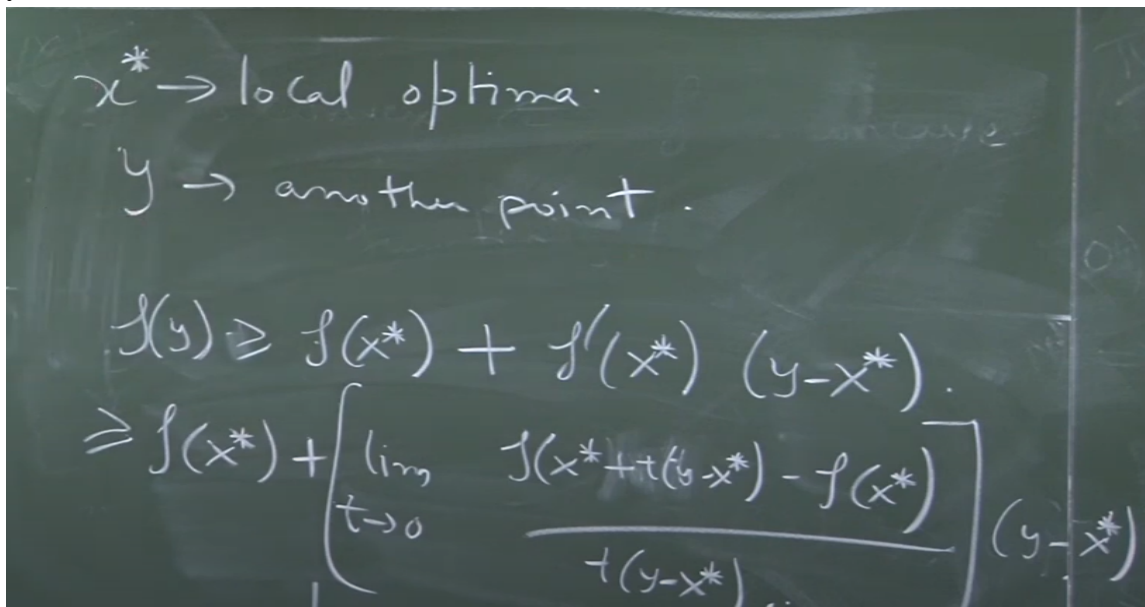 x* → local optima.
y → another point.
f(y) ≥ f(x*) + f'(x*) (y-x*).
≥ f(x*) + [lim t→0 f(x*+t(y-x*) - f(x*) / t(y-x*)] (y-x*)